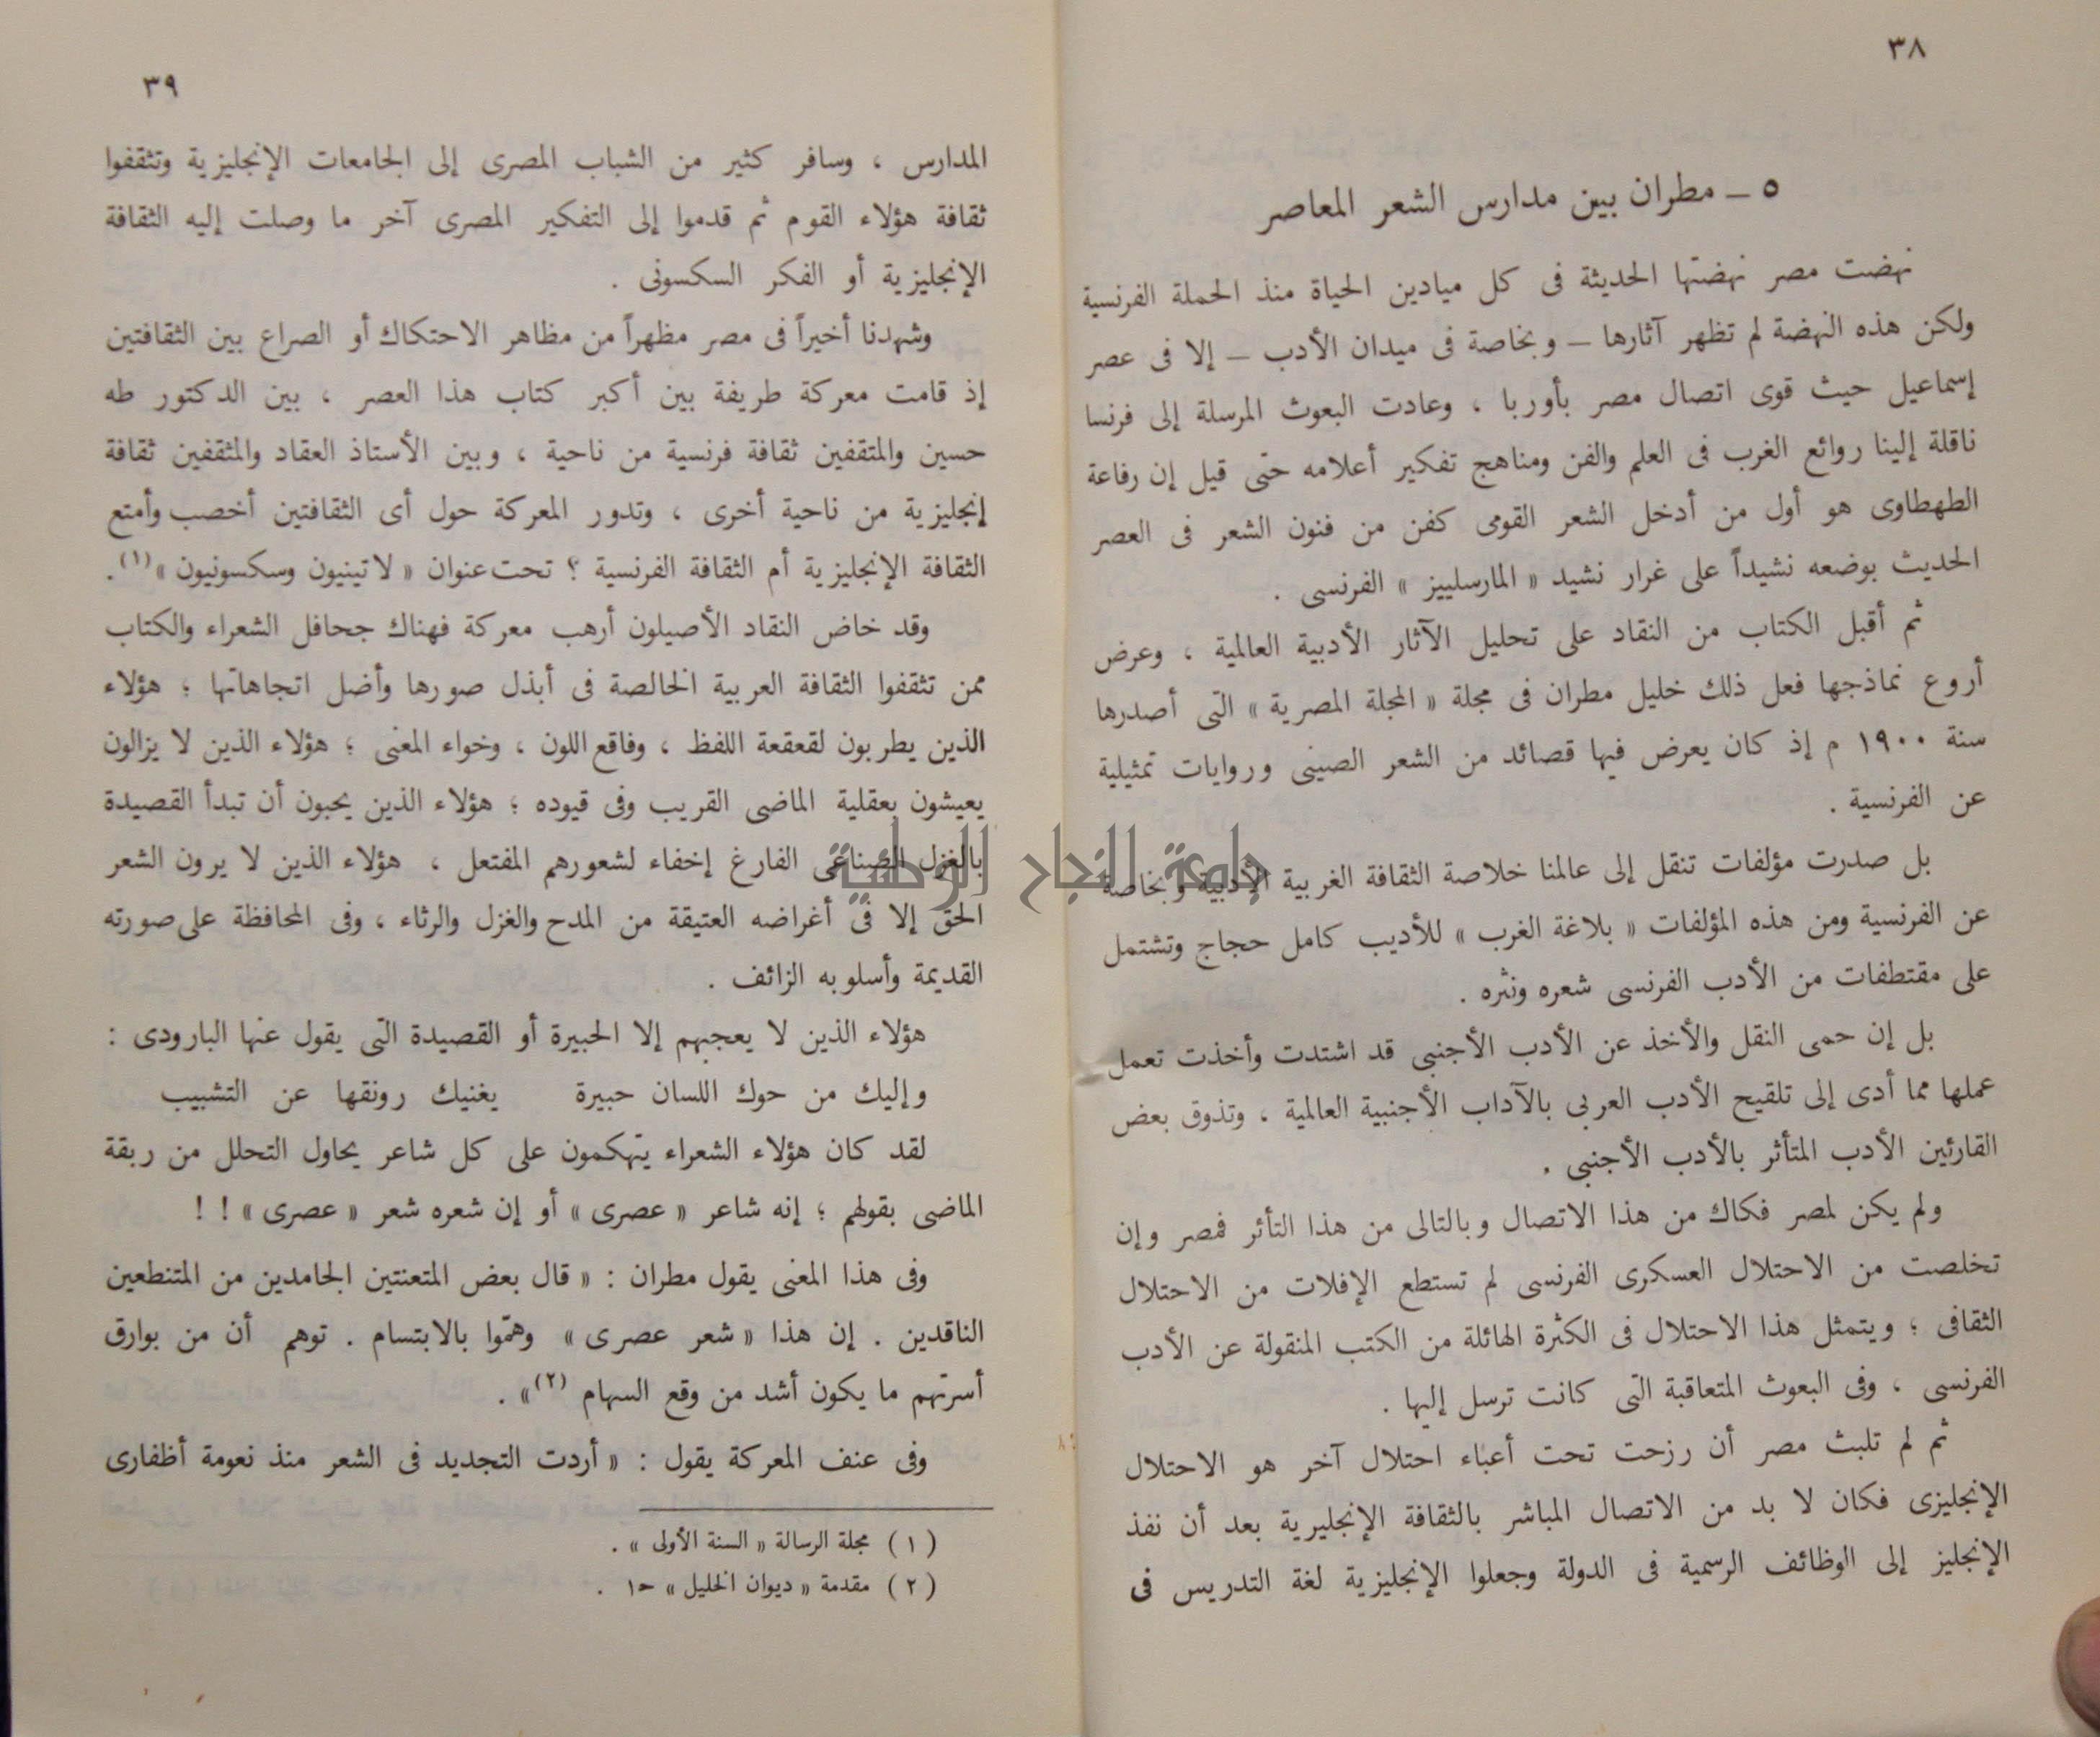 ٣٨
٥ – مطران بين مدارس الشعر المعاصر
نهضت مصر نهضتها الحديثة فى كل ميادين الحياة منذ الحملة الفرنسية
ولكن هذه النهضة لم تظهر آثارها – وبخاصة فى ميدان الأدب – إلا فى عصر
إسماعيل حيث قوى اتصال مصر بأوربا ، وعادت البعوث المرسلة إلى فرنسا
ناقلة إلينا روائع الغرب فى العلم والفن ومناهج تفكير أعلامه حتى قيل إن رفاعة
الطهطاوى هو أول من أدخل الشعر القومى كفن من فنون الشعر فى العصر
الحديث بوضعه نشيداً على غرار نشيد « المارسلييز » الفرنسى .
ثم أقبل الكتاب من النقاد على تحليل الآثار الأدبية العالمية ، وعرض
أروع نماذجها فعل ذلك خليل مطران فى مجلة « المجلة المصرية » التى أصدرها
سنة ١٩٠٠ م إذ كان يعرض فيها قصائد من الشعر الصينى وروايات تمثيلية
عن الفرنسية .
بل صدرت مؤلفات تنقل إلى عالمنا خلاصة الثقافة الغربية الأدبية وبخاصة
عن الفرنسية ومن هذه المؤلفات « بلاغة الغرب » للأديب كامل حجاج وتشتمل
على مقتطفات من الأدب الفرنسى شعره ونثره .
بل إن حمى النقل والأخذ عن الأدب الأجنبى قد اشتدت وأخذت تعمل
عملها مما أدى إلى تلقيح الأدب العربى بالآداب الأجنبية العالمية ، وتذوق بعض
القارئين الأدب المتأثر بالأدب الأجنبى .
ولم يكن لمصر فكاك من هذا الاتصال وبالتالى من هذا التأثر فمصر وإن
تخلصت من الاحتلال العسكرى الفرنسى لم تستطع الإفلات من الاحتلال
الثقافى ؛ ويتمثل هذا الاحتلال فى الكثرة الهائلة من الكتب المنقولة عن الأدب
الفرنسى ، وفى البعوث المتعاقبة التى كانت ترسل إليها .
ثم لم تلبث مصر أن رزحت تحت أعباء احتلال آخر هو الاحتلال
الإنجليزى فكان لا بد من الاتصال المباشر بالثقافة الإنجليرية بعد أن نفذ
الإنجليز إلى الوظائف الرسمية فى الدولة وجعلوا الإنجليزية لغة التدريس فى
٣٩
المدارس ، وسافر كثير من الشباب المصرى إلى الجامعات الإنجليزية وتثقفوا
ثقافة هؤلاء القوم ثم قدموا إلى التفكير المصرى آخر ما وصلت إليه الثقافة
الإنجليزية أو الفكر السكسونى .
وشهدنا أخيراً فى مصر مظهراً من مظاهر الاحتكاك أو الصراع بين الثقافتين
إذ قامت معركة طريفة بين أكبر كتاب هذا العصر ، بين الدكتور طه
حسين والمتقفين ثقافة فرنسية من ناحية ، وبين الأستاذ العقاد والمثقفين ثقافة
إنجليزية من ناحية أخرى ، وتدور المعركة حول أى الثقافتين أخصب وأمتع
الثقافة الإنجليزية أم الثقافة الفرنسية ؟ تحت عنوان « لاتينيون وسكسونيون »(١).
وقد خاض النقاد الأصيلون أرهب معركة فهناك جحافل الشعراء والكتاب
ممن تثقفوا الثقافة العربية الخالصة فى أبذل صورها وأضل اتجاهاتها ؛ هؤلاء
الذين يطربون لقعقعة اللفظ ، وفاقع اللون ، وخواء المعنى ؛ هؤلاء الذين لا يزالون
يعيشون بعقلية الماضى القريب وفى قيوده ؛ هؤلاء الذين يحبون أن تبدأ القصيدة
بالغزل الصناعى الفارغ إخفاء لشعورهم المفتعل ، هؤلاء الذين لا يرون الشعر
الحق إلا فى أغراضه العتيقة من المدح والغزل والرثاء ، وفى المحافظة على صورته
القديمة وأسلوبه الزائف .
هؤلاء الذين لا يعجبهم إلا الحبيرة أو القصيدة التى يقول عنها البارودى :
وإليك من حوك اللسان حبيرة يغنيك رونقها عن التشبيب
لقد كان هؤلاء الشعراء يتهكمون على كل شاعر يحاول التحلل من ربقة
الماضى بقولهم ؛ إنه شاعر « عصرى » أو إن شعره شعر « عصرى » ! !
وفى هذا المعنى يقول مطران : « قال بعض المتعنتين الجامدين من المتنطعين
الناقدين . إن هذا « شعر عصرى » وهمّوا بالابتسام . توهم أن من بوارق
أسرتهم ما يكون أشد من وقع السهام (٢)» .
وفى عنف المعركة يقول : « أردت التجديد فى الشعر منذ نعومة أظفارى
(١) مجلة الرسالة « السنة الأولى » .
(٢) مقدمة « ديوان الخليل » ح١ .
جامعة النجاح الوطنية